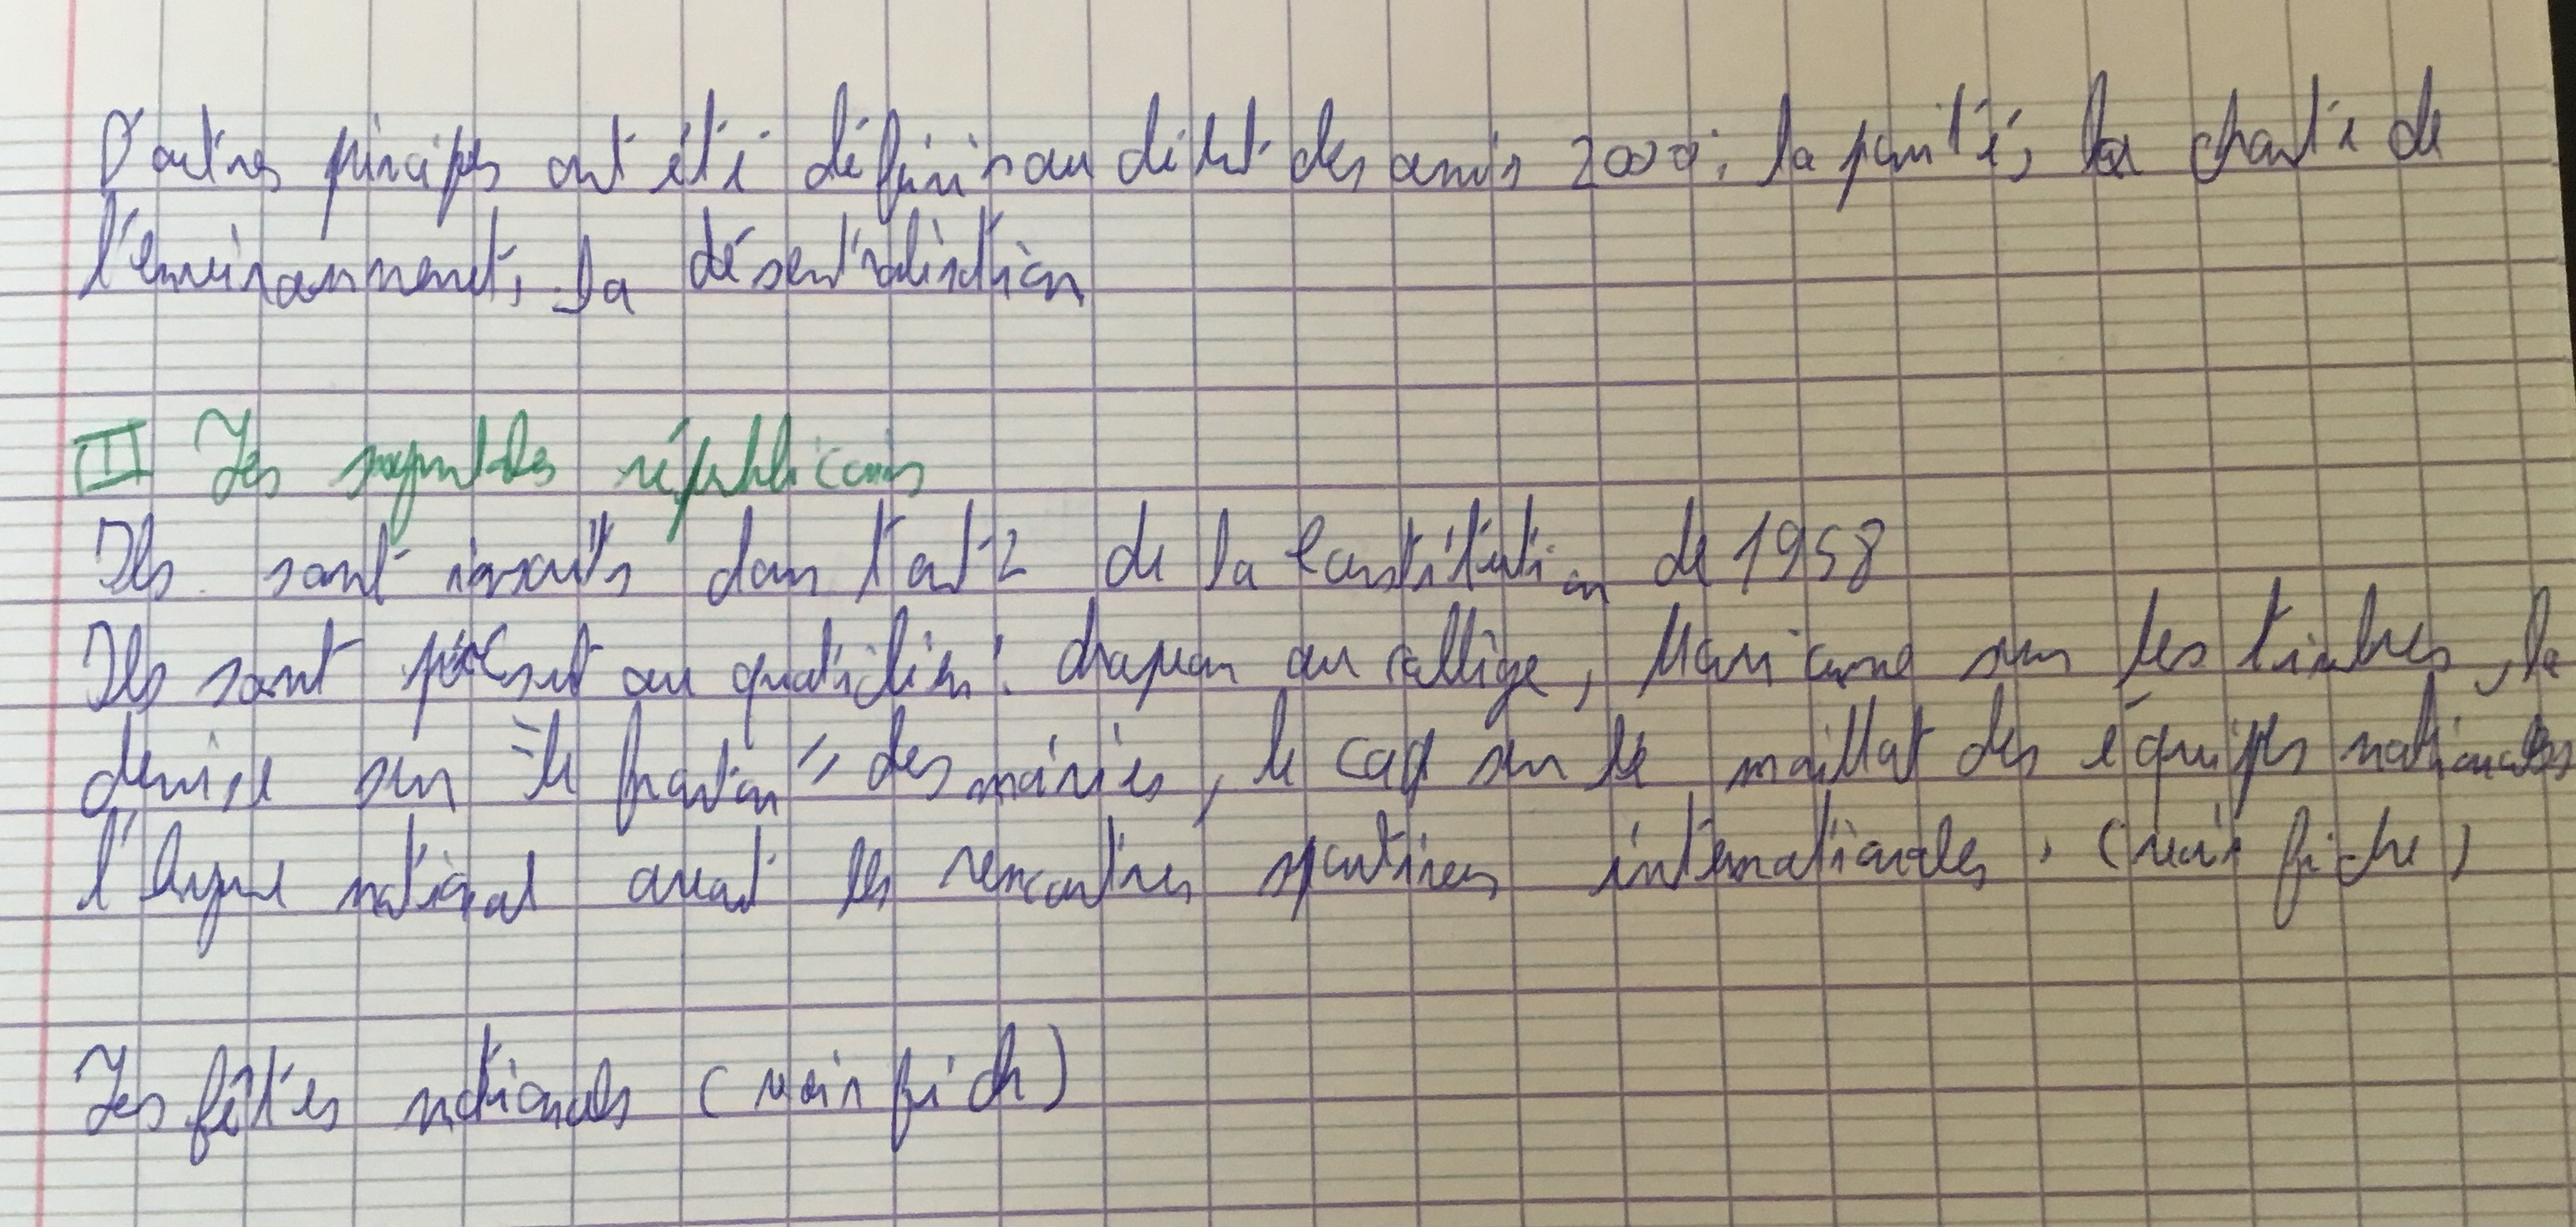 D'autres principes ont été définis au début des années 2000 : la parité, la charte de
l'environnement, la désentralisation
II Les symboles républicains
Ils sont inscrits dans l'art 2 de la Constitution de 1958
Ils sont présent au quotidien : drapeau au collège, Marianne sur les timbres, la
devise sur "le fronton" des mairies, le coq sur le maillot des équipes nationales
l'hymne national avant les rencontres sportives internationales. (voir fiche)
Les fêtes nationales (voir fich)